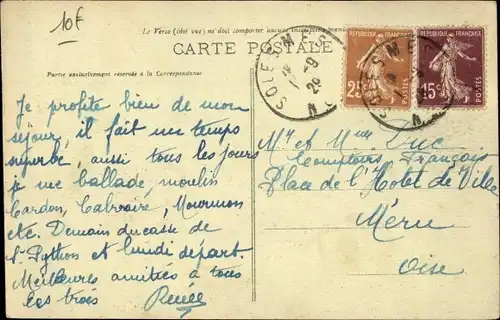 10F
Le Verso (côté vue) ne doit comporter aucune
CARTE POSTALE
Partie exclusivement réservée à la Correspondance
RÉPUBLIQUE FRANÇAISE
25c
POSTES
RÉPUBLIQUE FRANÇAISE
15c
POSTES
SOLESMES
-9
28
N
SOLESMES
Je profite bien de mon
séjour, il fait un temps
superbe, aussi tous les jours
je me ballade, moulin
Cardon, Calvaire, Mourmon
etc. Demain ducasse de
St Python et lundi départ.
Meilleures amitiés à tous
les trois Renée
Mr et Mme Duc
Comptoirs Français
Place de l'Hotel de Ville
Méru
Oise